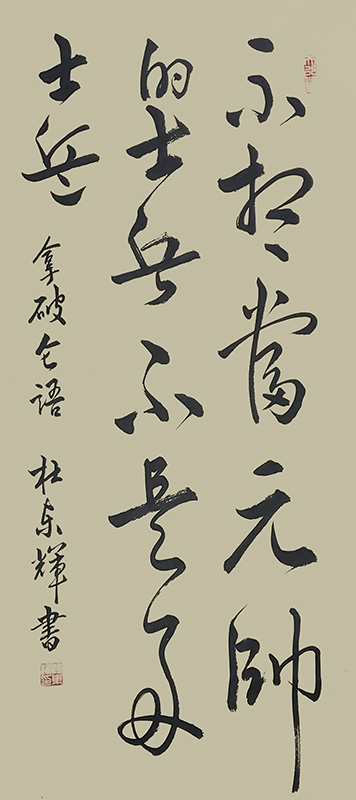 不想當元帥
的士兵不是好
士兵 拿破仑語 杜東輝書